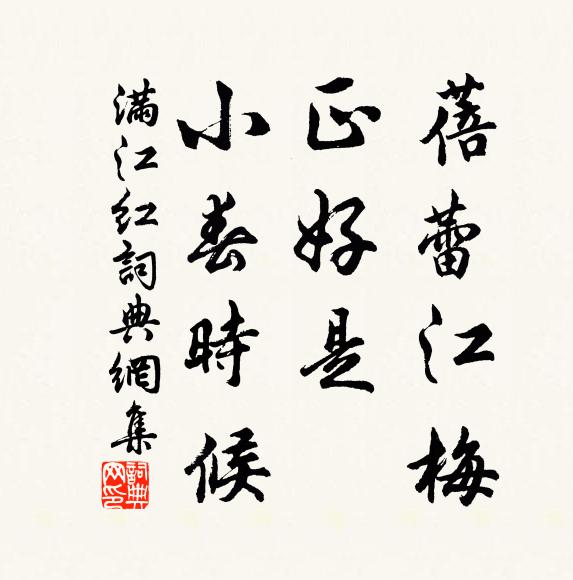 蓓蕾江梅
正好是
小春時候
滿江紅詞典網集
詞典网印